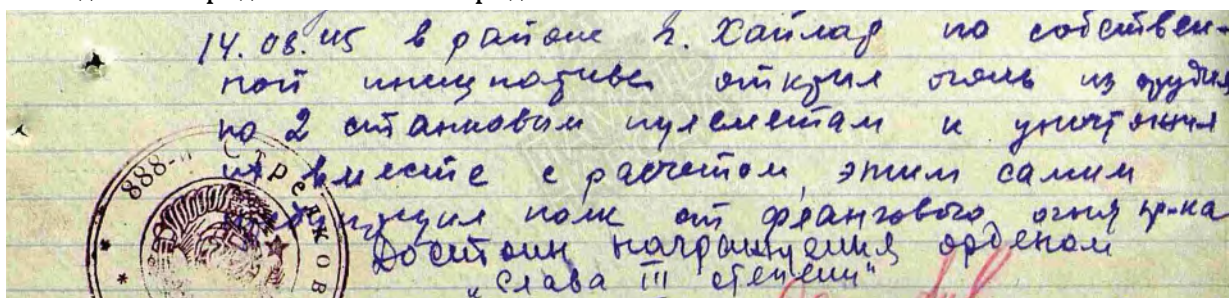 14.08.45 в районе г. Хайлар по собствен-
ной инициативе открыл огонь из орудия
по 2 станковым пулеметам и уничтожил
их вместе с расчетом, этим самим
полк от флангового огня пр-ка
Достоин награждения орденом
"Слава III степени"
888-й Стрелков